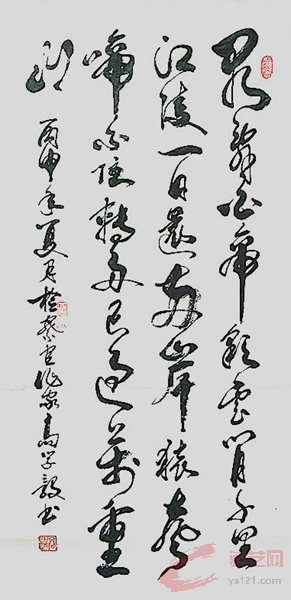 朝辞白帝彩云间千里
江陵一日還两岸猿声
啼不住轻舟已過万重
山
丙申年夏月 高学毅书
艺网
ys121.com